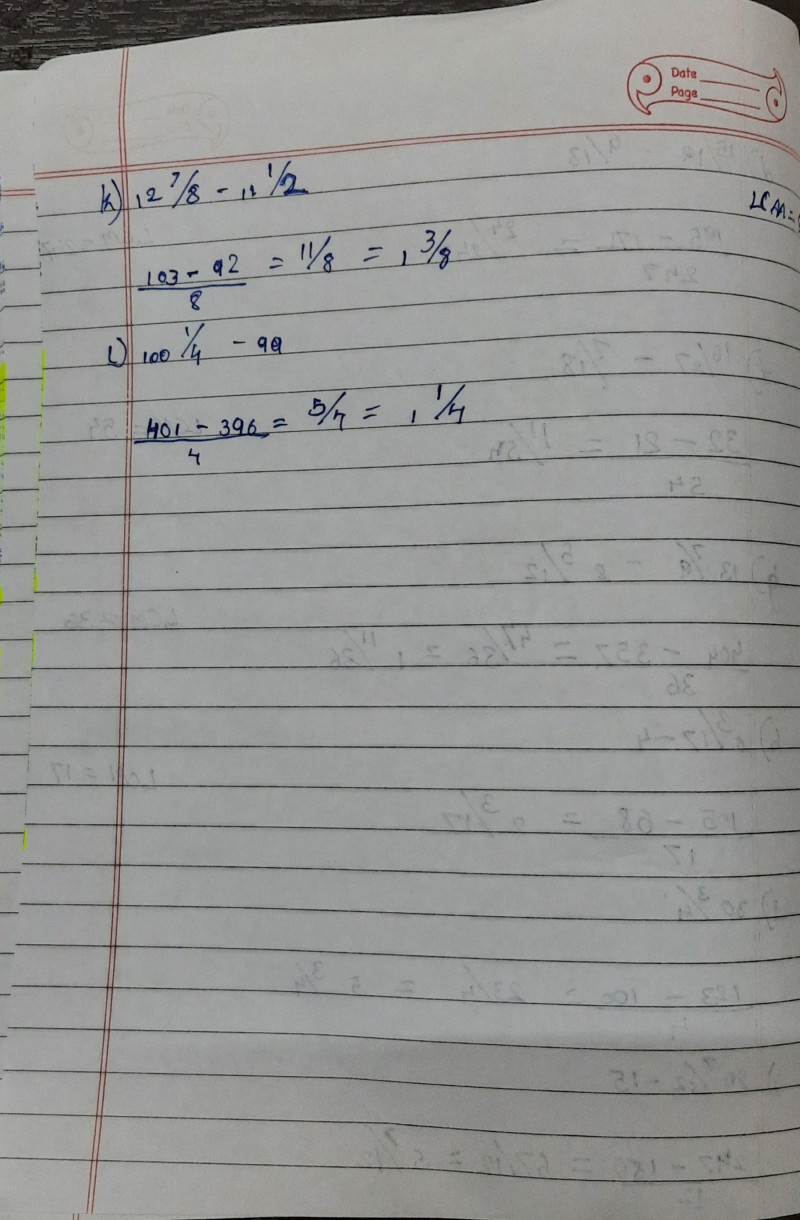 Date
Page
K) 12 7/8 - 11 1/2
LCM =
103 - 92 / 8 = 11/8 = 1 3/8
L) 100 1/4 - 99
401 - 396 / 4 = 5/4 = 1 1/4